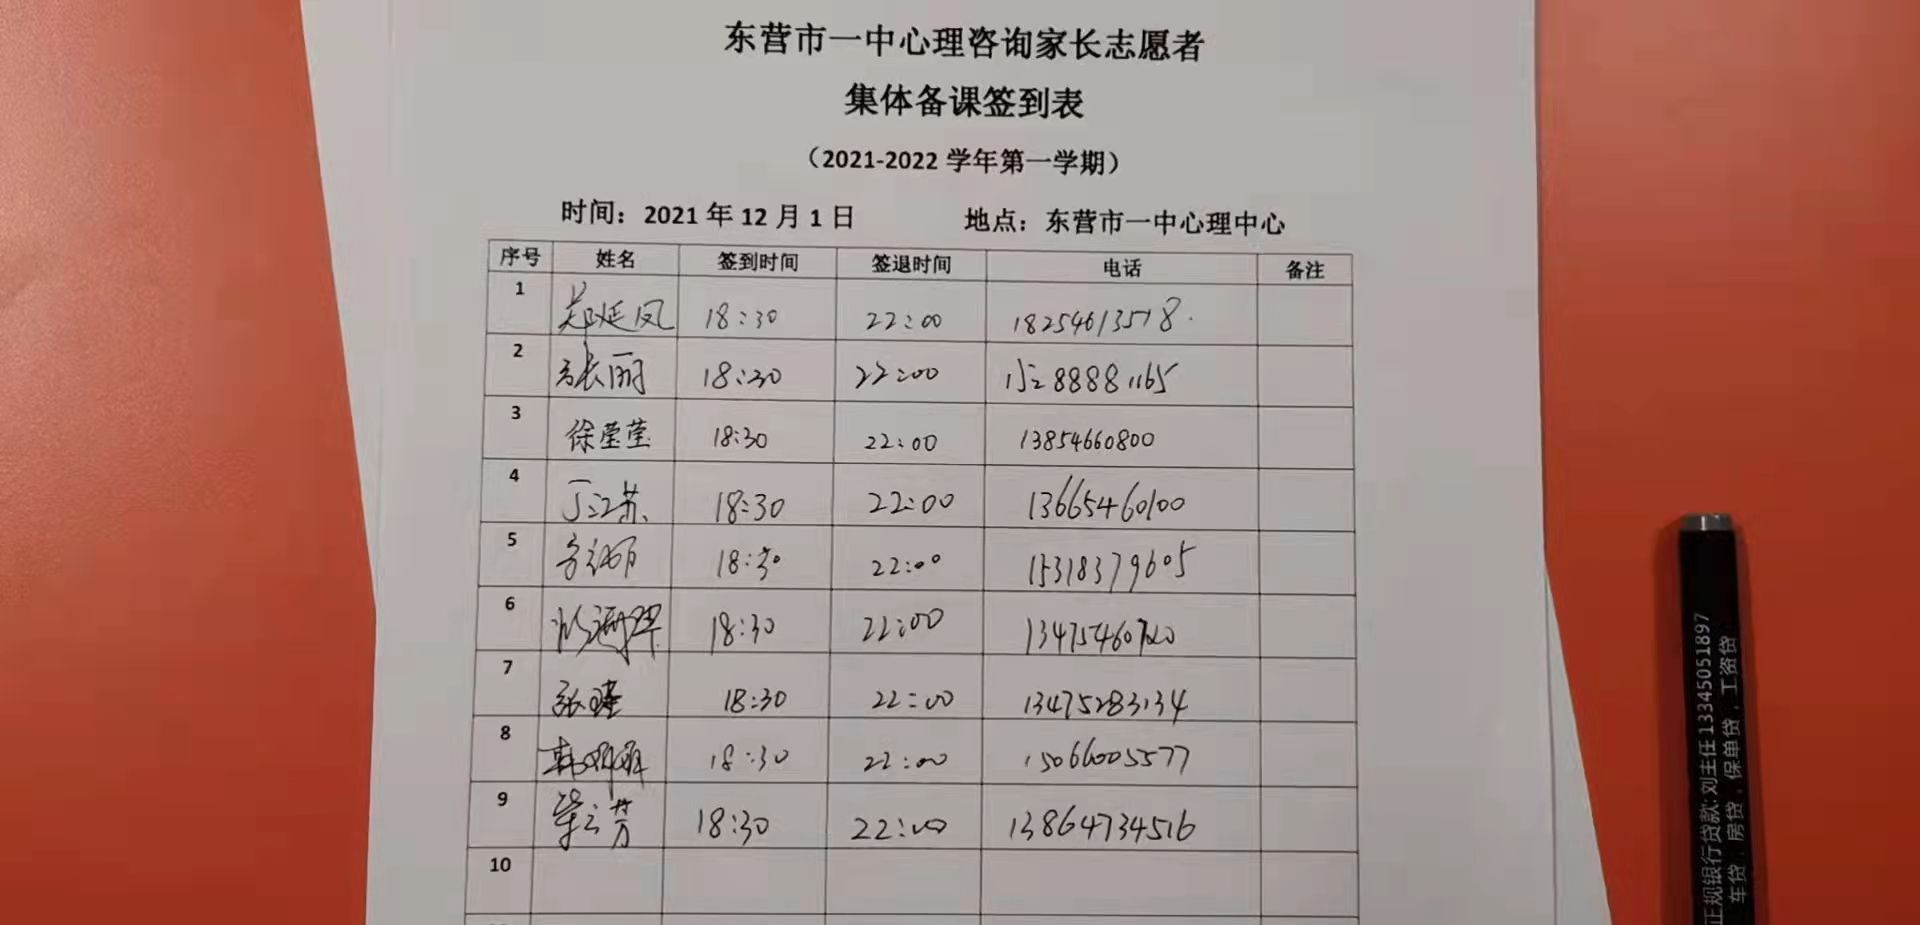 东营市一中心理咨询家长志愿者
集体备课签到表
（2021-2022 学年第一学期）
时间：2021 年 12 月 1 日 地点：东营市一中心理中心
序号 姓名 签到时间 签退时间 电话 备注
1 郑延凤 18:30 22:00 18254613518.
2 张丽 18:30 22:00 15288881165
3 徐莹莹 18:30 22:00 13854660800
4 丁江苏 18:30 22:00 13665460100
5 18:30 22:00 15318379605
6 18:30 22:00
7 张瑾 18:30 22:00 13475283134
8 18:30 22:00 15066005577
9 梁云芳 18:30 22:00 13864734516
10
正规银行贷款:刘主任13345051897
车贷．房贷．保单贷．工资贷